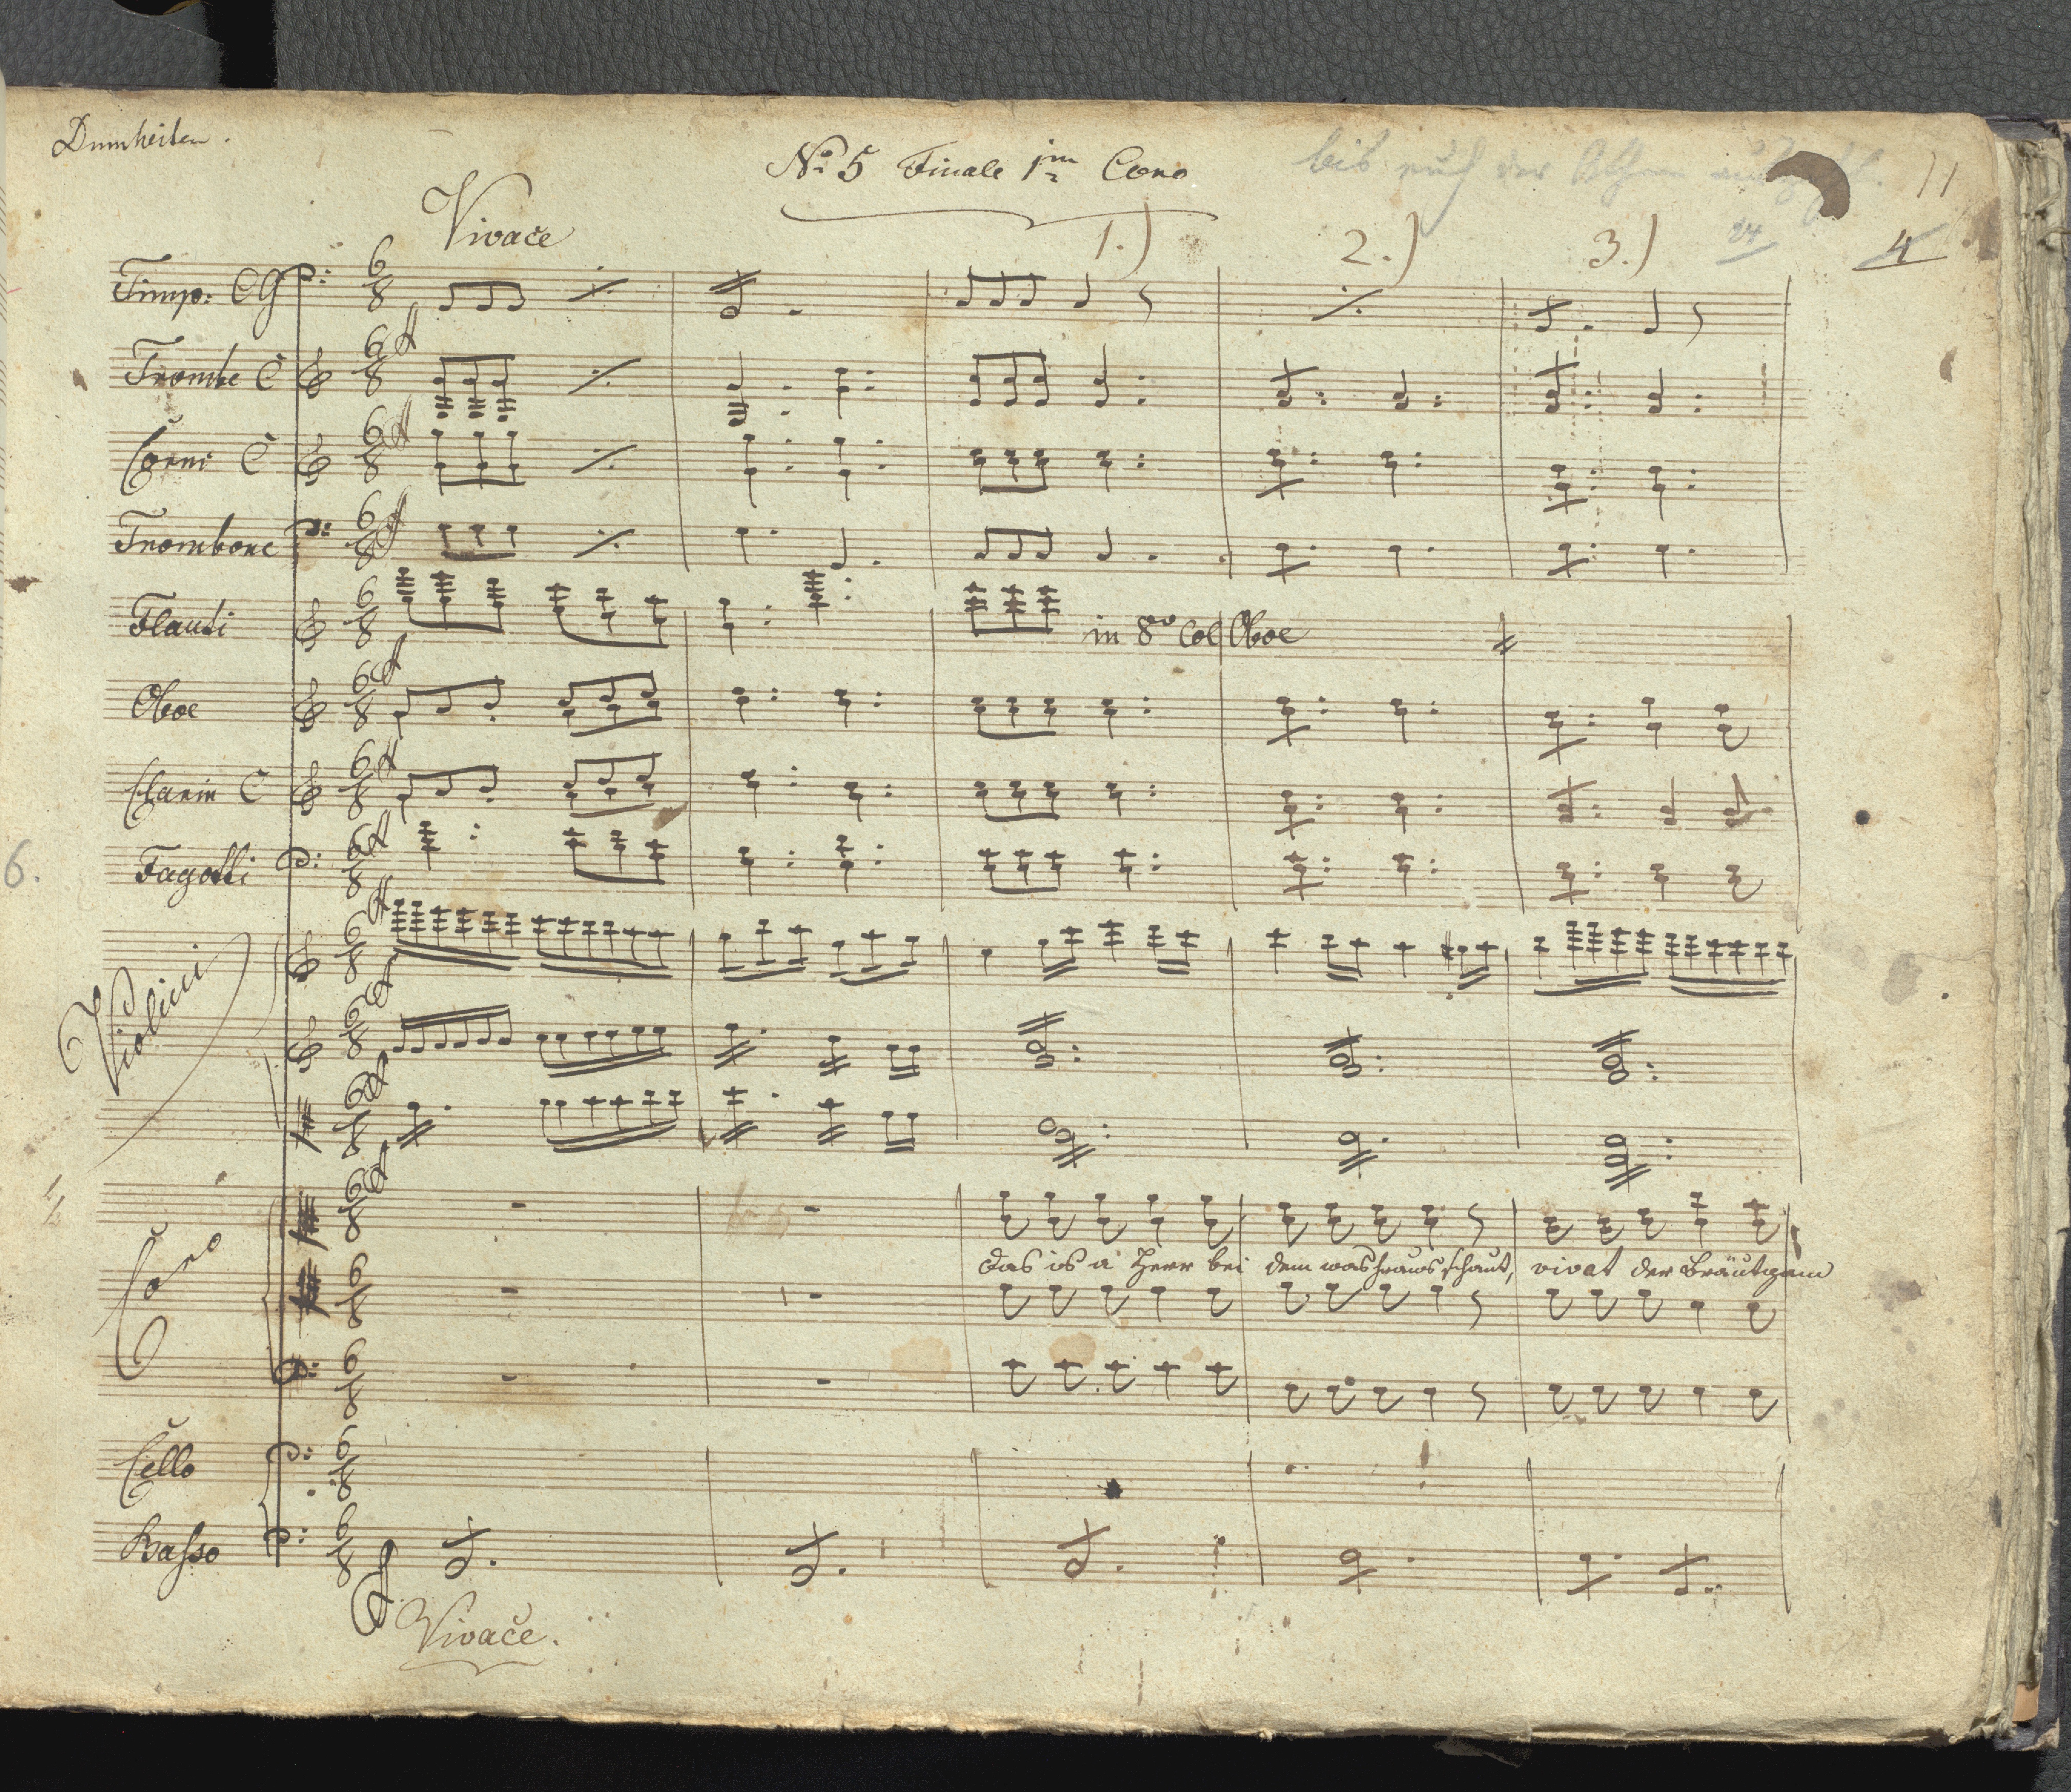 Dumheiten.
No 5 Finale 1m Coro
bis auch der
11
Vivače
1.)
2.)
3.)
24
4
Timp: CG
Trombe C
Corni C
Trombone
Flauti
in 8vo Col Oboe
Oboe
Clarin C
6.
Fagotti
Violini
Coro
das is a Herr bei dem was heraus schaut, vivat der Bräutgam
Cello
Basso
Vivače.